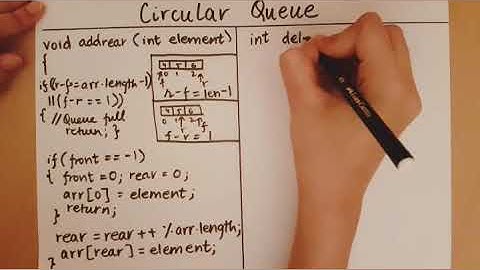 Circular Queue
void addrear (int element)
{
if((r-f=arr.length-1)
||(f-r==1))
{ //Queue full
return; }
if(front == -1)
{ front=0; rear=0;
arr[0] = element;
return;
}
rear = rear++ % arr.length;
arr[rear] = element;
}
4 5 6
0 1 2
f r
r-f=len-1
4 5 6
0 1 2
r f
f-r=1
int del